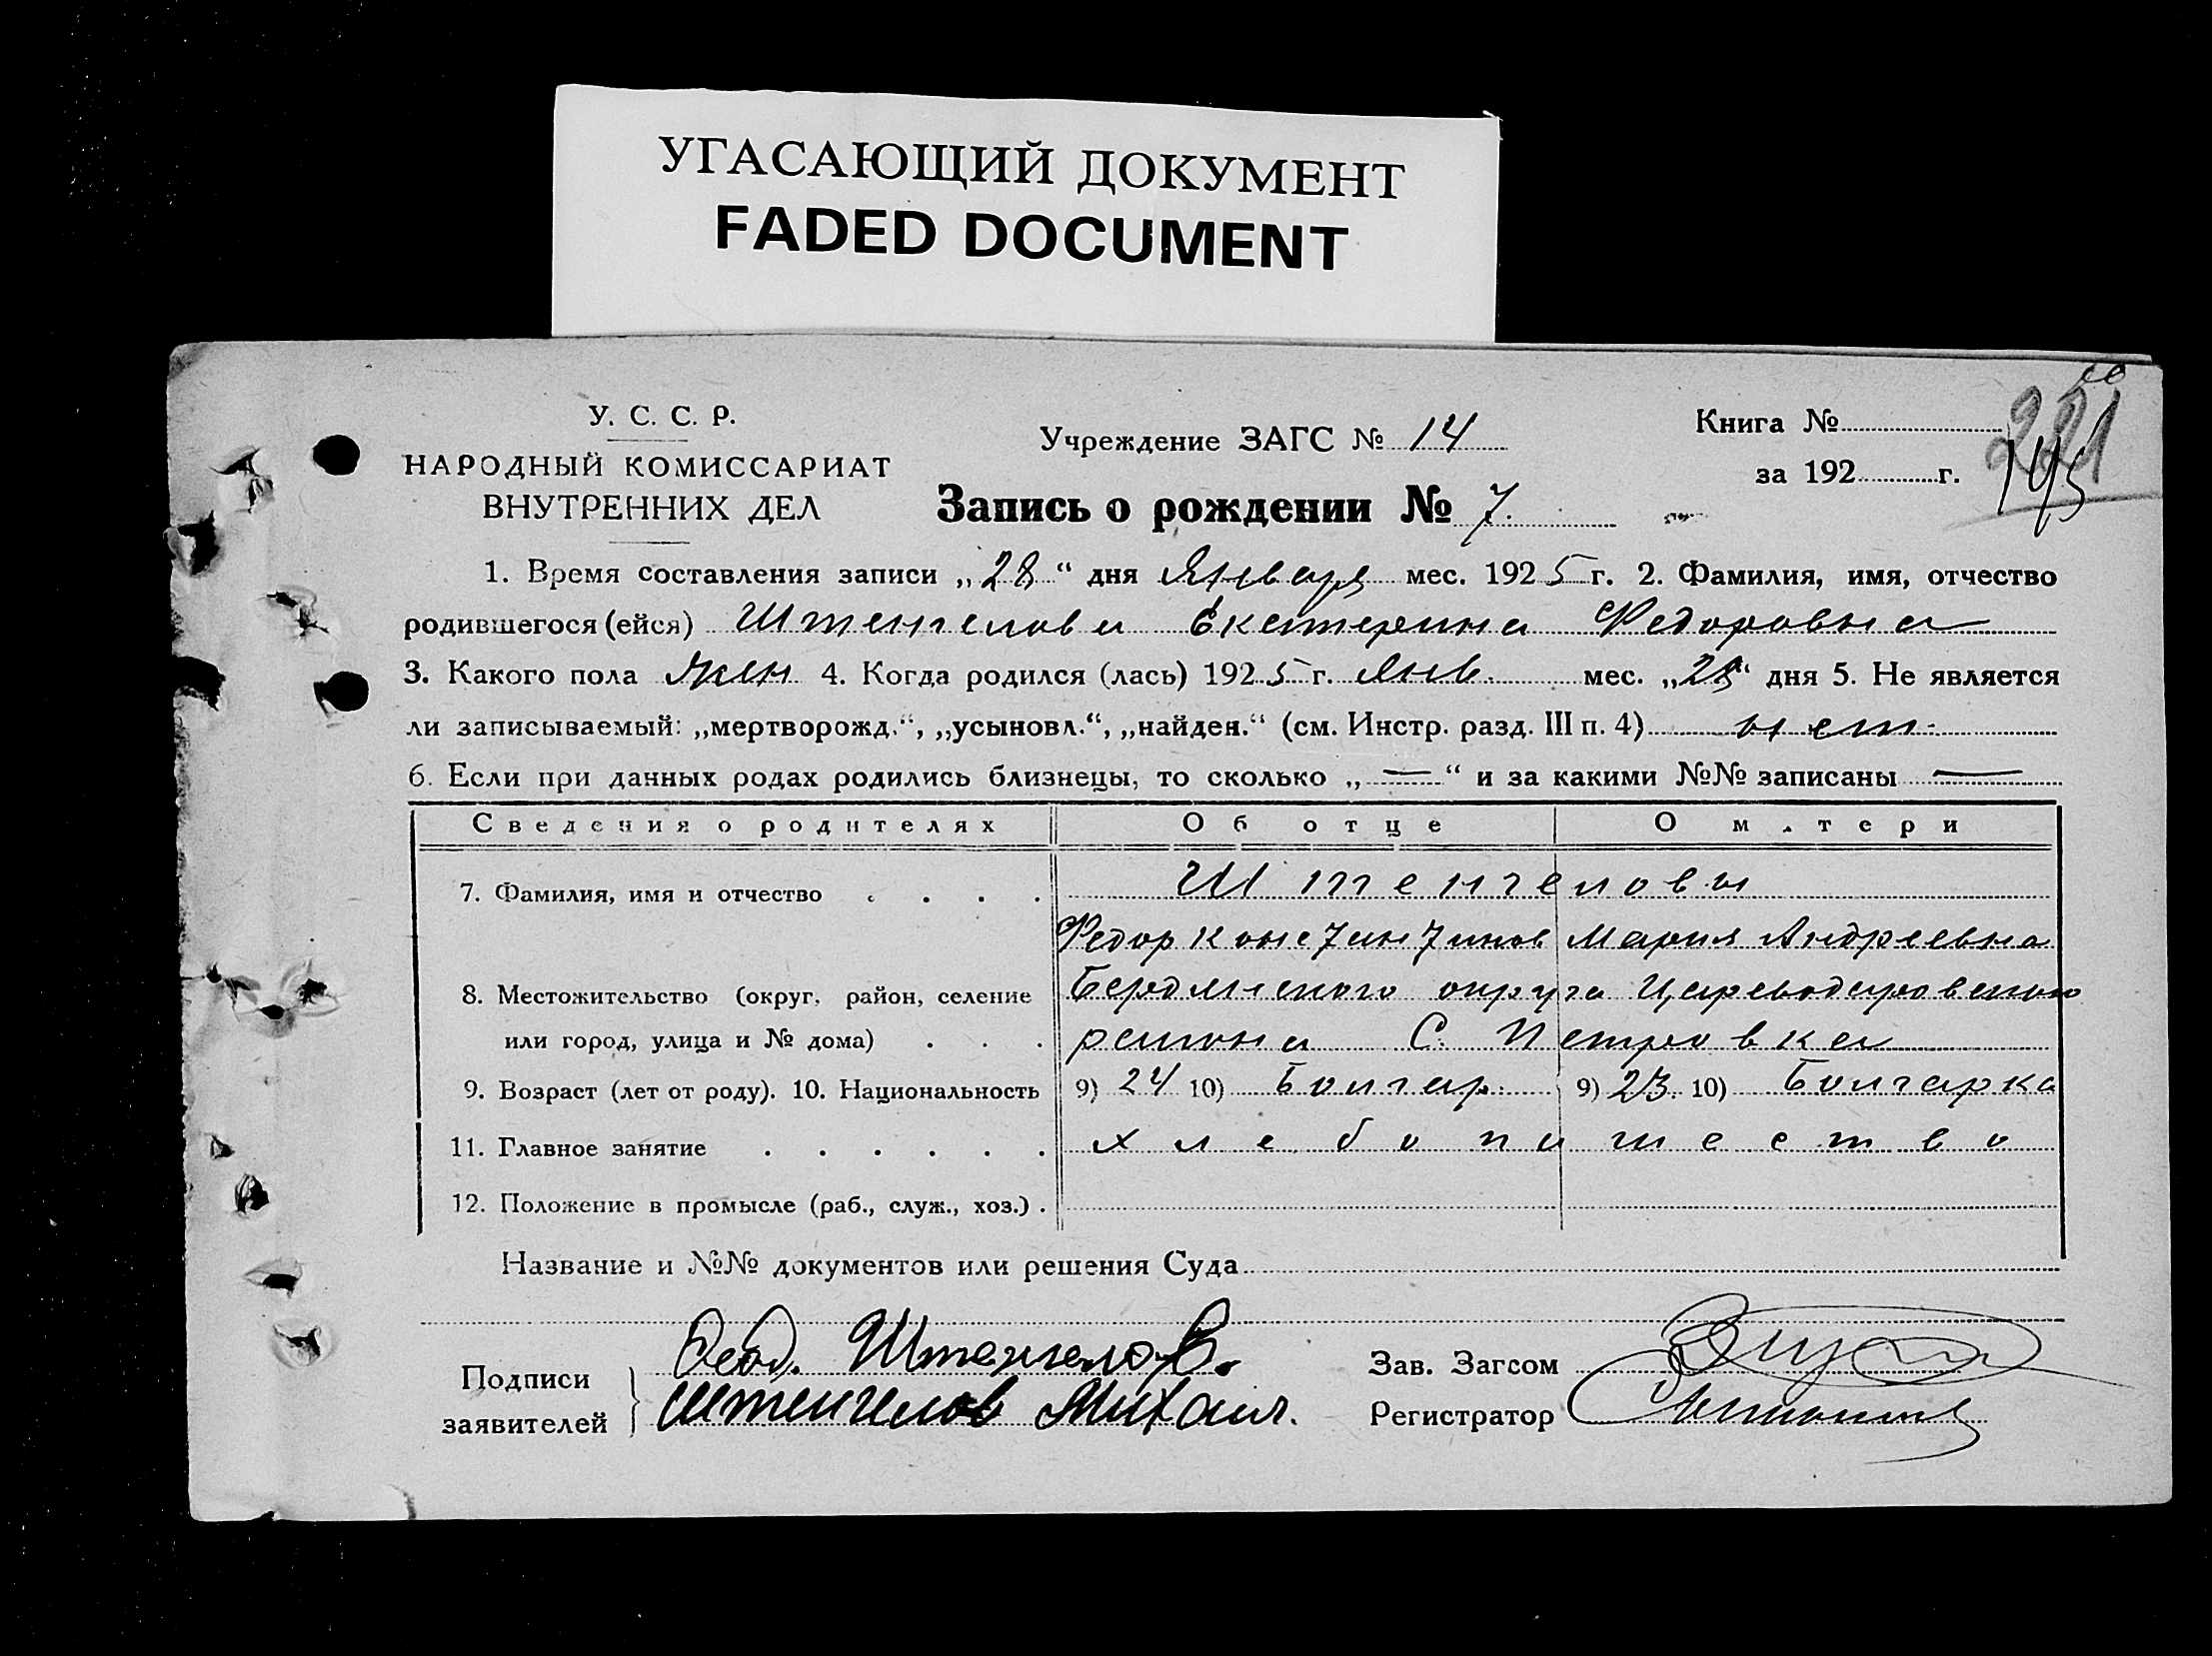 УГАСАЮЩИЙ ДОКУМЕНТ
FADED DOCUMENT
У. С. С. Р.
НАРОДНЫЙ КОМИССАРИАТ
ВНУТРЕННИХ ДЕЛ
Учреждение ЗАГС № 14
Книга №
за 192 г.
221
145
Запись о рождении № 7.
1. Время составления записи „28“ дня Января мес. 1925 г. 2. Фамилия, имя, отчество
родившегося (ейся) Штенгелова Екатерина Федоровна
3. Какого пола жен 4. Когда родился (лась) 1925 г. Янв. мес. „28“ дня 5. Не является
ли записываемый: „мертворожд.“, „усыновл.“, „найден.“ (см. Инстр. разд. III п. 4) нет.
6. Если при данных родах родились близнецы, то сколько „—“ и за какими №№ записаны —
Сведения о родителях Об отце О матери
7. Фамилия, имя и отчество . . . . Штенгеловы
Федор Константинов Мария Андреевна
8. Местожительство (округ, район, селение Бердянского округа Цареводаровского
или город, улица и № дома) . . . района С. Петровка
9. Возраст (лет от роду). 10. Национальность 9) 24 10) Болгар. 9) 23. 10) Болгарка
11. Главное занятие . . . . . . хлебопашество
12. Положение в промысле (раб., служ., хоз.) .
Название и №№ документов или решения Суда
Подписи
заявителей
Феод. Штенгелов.
Штенгелов Михаил.
Зав. Загсом
Регистратор